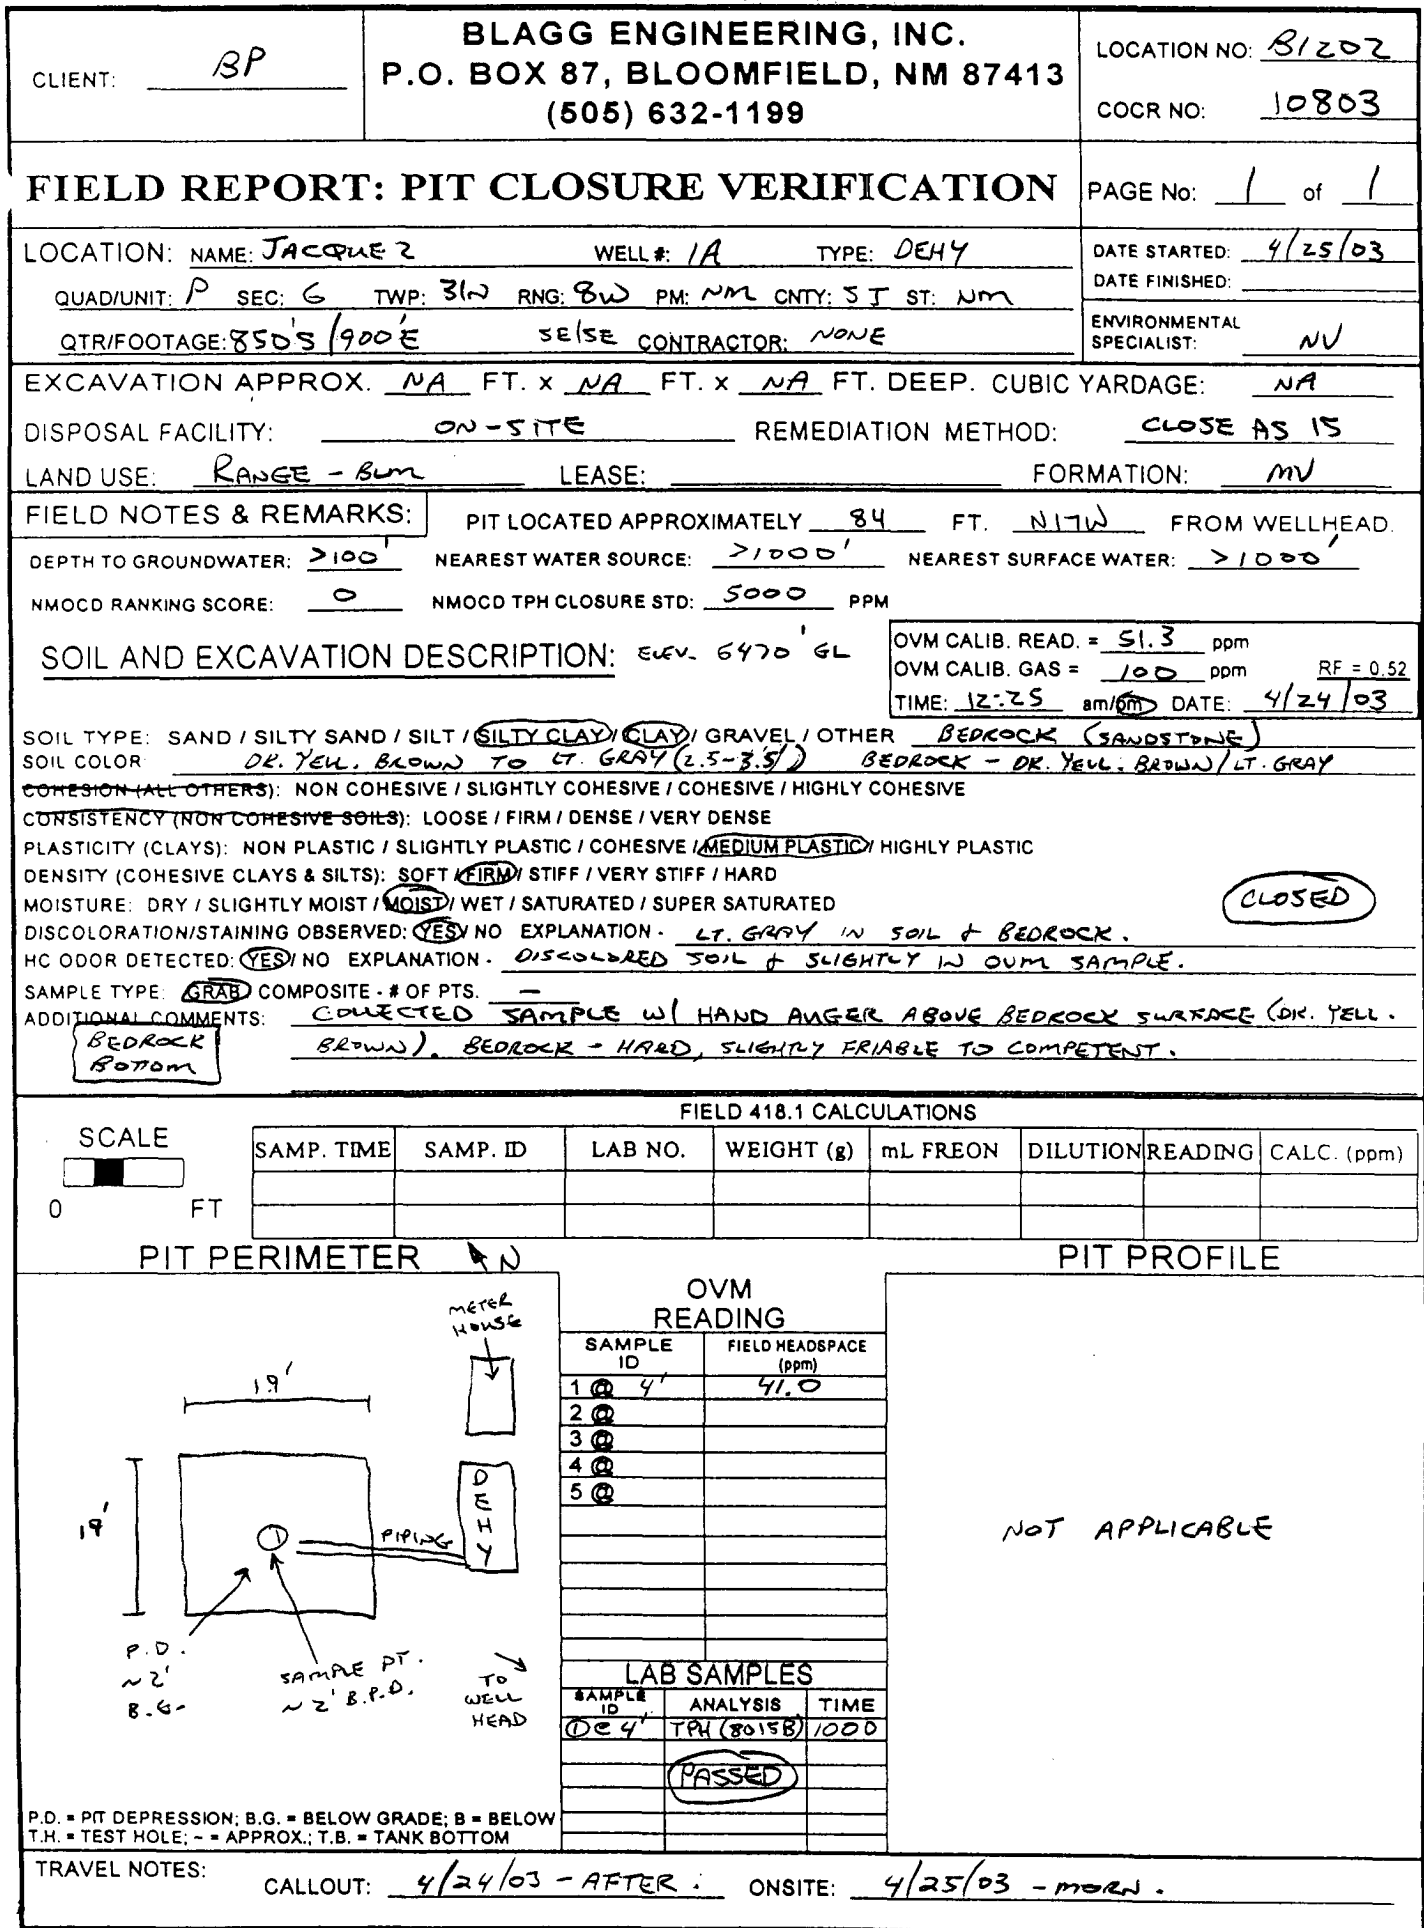 CLIENT: BP
BLAGG ENGINEERING, INC.
P.O. BOX 87, BLOOMFIELD, NM 87413
(505) 632-1199
LOCATION NO: B1202
COCR NO: 10803
FIELD REPORT: PIT CLOSURE VERIFICATION
PAGE No: 1 of 1
LOCATION: NAME: JACQUEZ WELL #: 1A TYPE: DEHY
QUAD/UNIT: P SEC: 6 TWP: 31N RNG: 8W PM: NM CNTY: SJ ST: NM
QTR/FOOTAGE: 850'S/900'E SE/SE CONTRACTOR: NONE
DATE STARTED: 4/25/03
DATE FINISHED:
ENVIRONMENTAL
SPECIALIST: NV
EXCAVATION APPROX. NA FT. x NA FT. x NA FT. DEEP. CUBIC YARDAGE: NA
DISPOSAL FACILITY: ON-SITE REMEDIATION METHOD: CLOSE AS IS
LAND USE: RANGE - BLM LEASE: FORMATION: MV
FIELD NOTES & REMARKS: PIT LOCATED APPROXIMATELY 84 FT. N17W FROM WELLHEAD.
DEPTH TO GROUNDWATER: >100' NEAREST WATER SOURCE: >1000' NEAREST SURFACE WATER: >1000'
NMOCD RANKING SCORE: 0 NMOCD TPH CLOSURE STD: 5000 PPM
SOIL AND EXCAVATION DESCRIPTION: ELEV. 6470' GL
OVM CALIB. READ. = 51.3 ppm
OVM CALIB. GAS = 100 ppm RF = 0.52
TIME: 12:25 am/pm DATE: 4/24/03
SOIL TYPE: SAND / SILTY SAND / SILT / SILTY CLAY / CLAY / GRAVEL / OTHER BEDROCK (SANDSTONE)
SOIL COLOR DK. YELL. BROWN TO LT. GRAY (2.5-3.5') BEDROCK - DK. YELL. BROWN/LT. GRAY
COHESION (ALL OTHERS): NON COHESIVE / SLIGHTLY COHESIVE / COHESIVE / HIGHLY COHESIVE
CONSISTENCY (NON COHESIVE SOILS): LOOSE / FIRM / DENSE / VERY DENSE
PLASTICITY (CLAYS): NON PLASTIC / SLIGHTLY PLASTIC / COHESIVE / MEDIUM PLASTIC / HIGHLY PLASTIC
DENSITY (COHESIVE CLAYS & SILTS): SOFT / FIRM / STIFF / VERY STIFF / HARD
MOISTURE: DRY / SLIGHTLY MOIST / MOIST / WET / SATURATED / SUPER SATURATED
CLOSED
DISCOLORATION/STAINING OBSERVED: YES / NO EXPLANATION - LT. GRAY IN SOIL & BEDROCK.
HC ODOR DETECTED: YES / NO EXPLANATION - DISCOLORED SOIL & SLIGHTLY IN OVM SAMPLE.
SAMPLE TYPE: GRAB COMPOSITE - # OF PTS. -
ADDITIONAL COMMENTS: COLLECTED SAMPLE W/ HAND AUGER ABOVE BEDROCK SURFACE (DK. YELL.
BROWN). BEDROCK - HARD, SLIGHTLY FRIABLE TO COMPETENT.
BEDROCK
BOTTOM
FIELD 418.1 CALCULATIONS
SCALE
0 FT
SAMP. TIME SAMP. ID LAB NO. WEIGHT (g) mL FREON DILUTION READING CALC. (ppm)
PIT PERIMETER N
METER
HOUSE
19'
19'
DEHY
1
PIPING
P.D.
~2'
B.G.
SAMPLE PT.
~2' B.P.D.
TO
WELL
HEAD
P.D. = PIT DEPRESSION; B.G. = BELOW GRADE; B = BELOW
T.H. = TEST HOLE; ~ = APPROX.; T.B. = TANK BOTTOM
OVM
READING
SAMPLE
ID
FIELD HEADSPACE
(ppm)
1 @ 4' 41.0
2 @
3 @
4 @
5 @
LAB SAMPLES
SAMPLE
ID
ANALYSIS TIME
① @ 4' TPH (8015B) 1000
PASSED
PIT PROFILE
NOT APPLICABLE
TRAVEL NOTES: CALLOUT: 4/24/03 - AFTER. ONSITE: 4/25/03 - MORN.